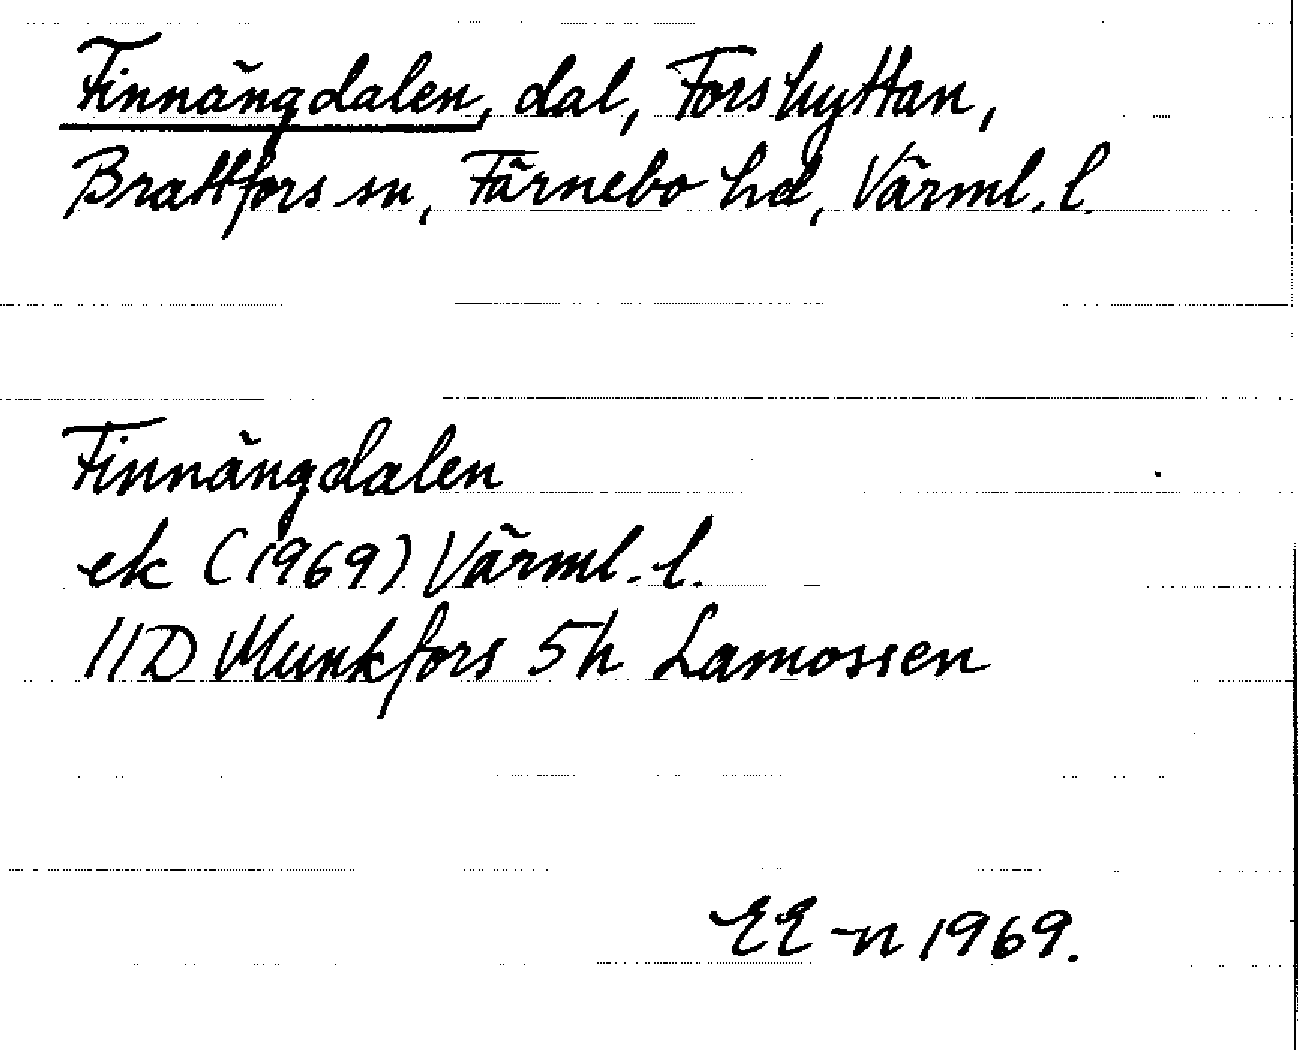 Finnängdalen, dal, Forshyttan,
Brattfors sn, Färnebo hd, Värml. l.
Finnängdalen
ek (1969) Värml. l.
11D Munkfors 5h Lamossen
EE-n 1969.